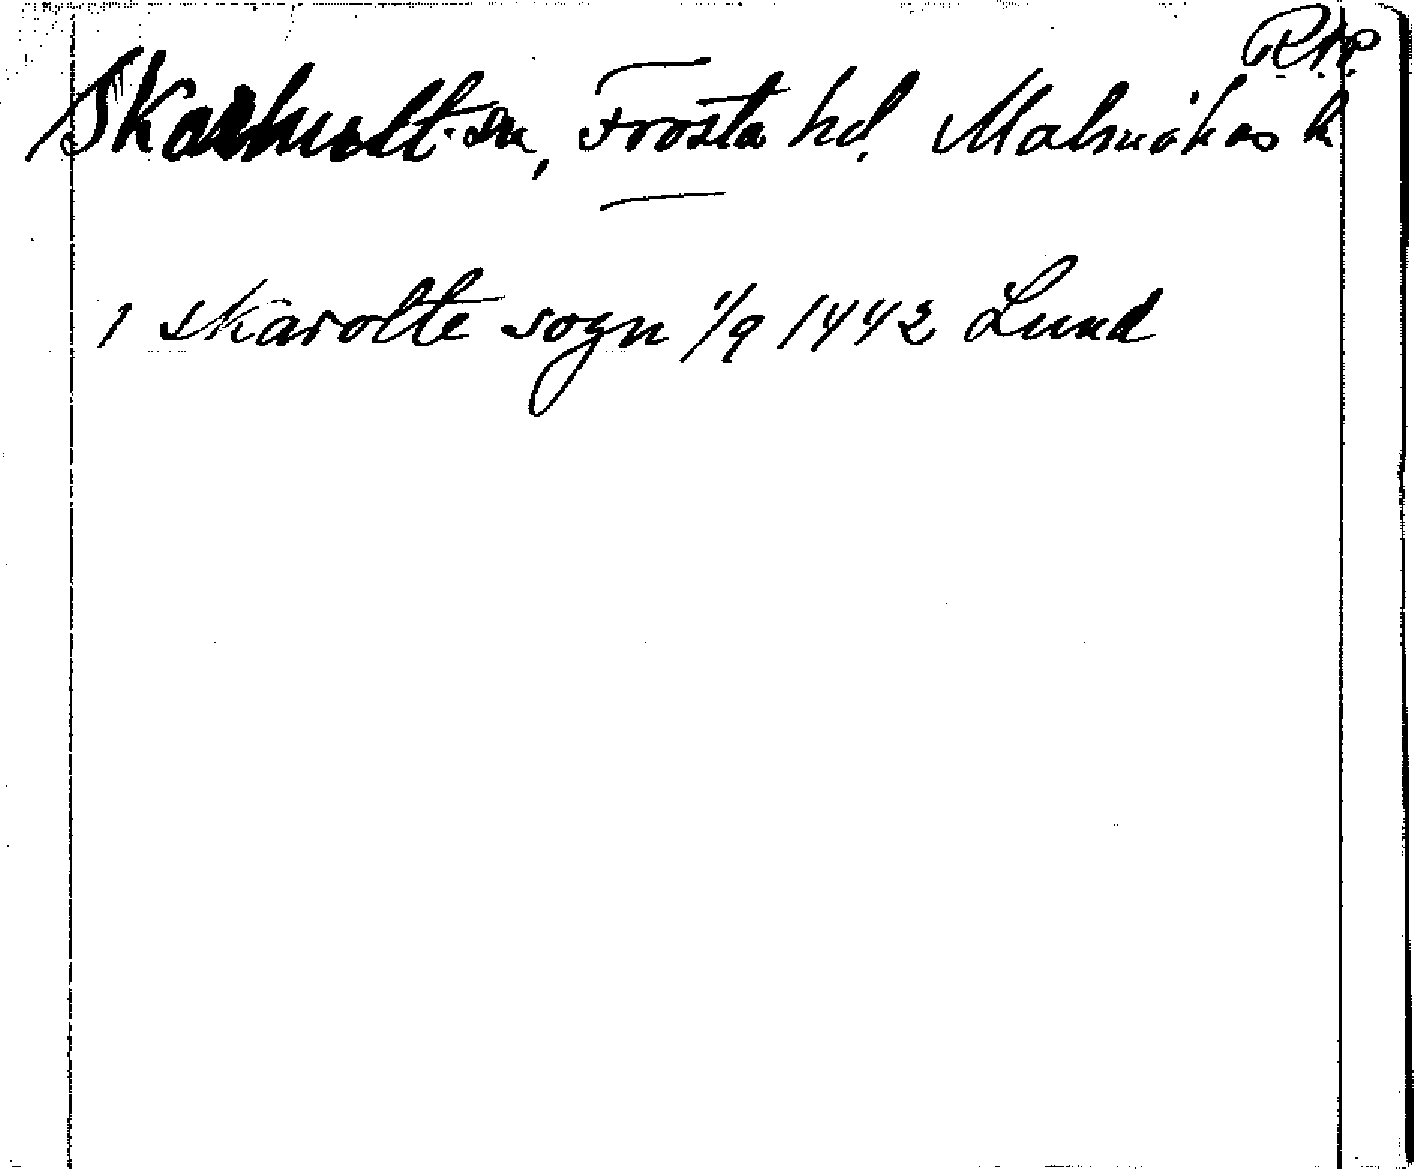 Skarhult sn, Frosta hd. Malmöhus l.
1 skarolte sogn 1/9 1442 Lund